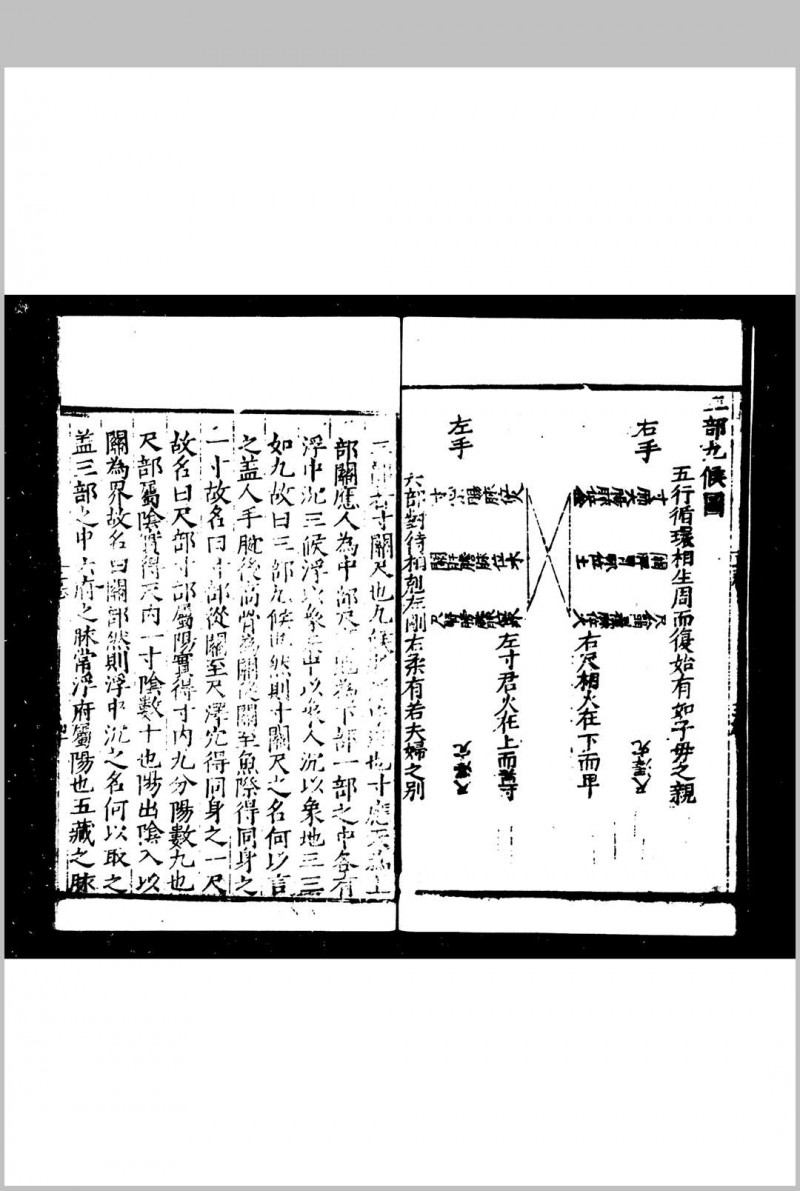 三部九候圖
五行循環相生周而復始有如子母之親
右手
尺澤穴
右尺相火在下而卑
左寸君火在上而
左手
尺澤穴
六部對待相剋左剛右柔有若夫婦之別
三部者寸關尺也九候
也寸應天為上
部關應人為中部尺
地為下部一部之中各有
浮中沉三候浮以象
中以象人沉以象地三三
如九故曰三部九候也然則寸關尺之名何以言
之蓋人手腕後高骨為關從關至魚際得同身之
一寸故名曰寸部從關至尺澤穴得同身之一尺
故名曰尺部寸部屬陽實得寸內九分陽數九也
尺部屬陰實得尺內一寸陰數十也陽出陰入以
關為界故名曰關部然則浮中沉之名何以取之
蓋三部之中六府之脉常浮府屬陽也五藏之脉